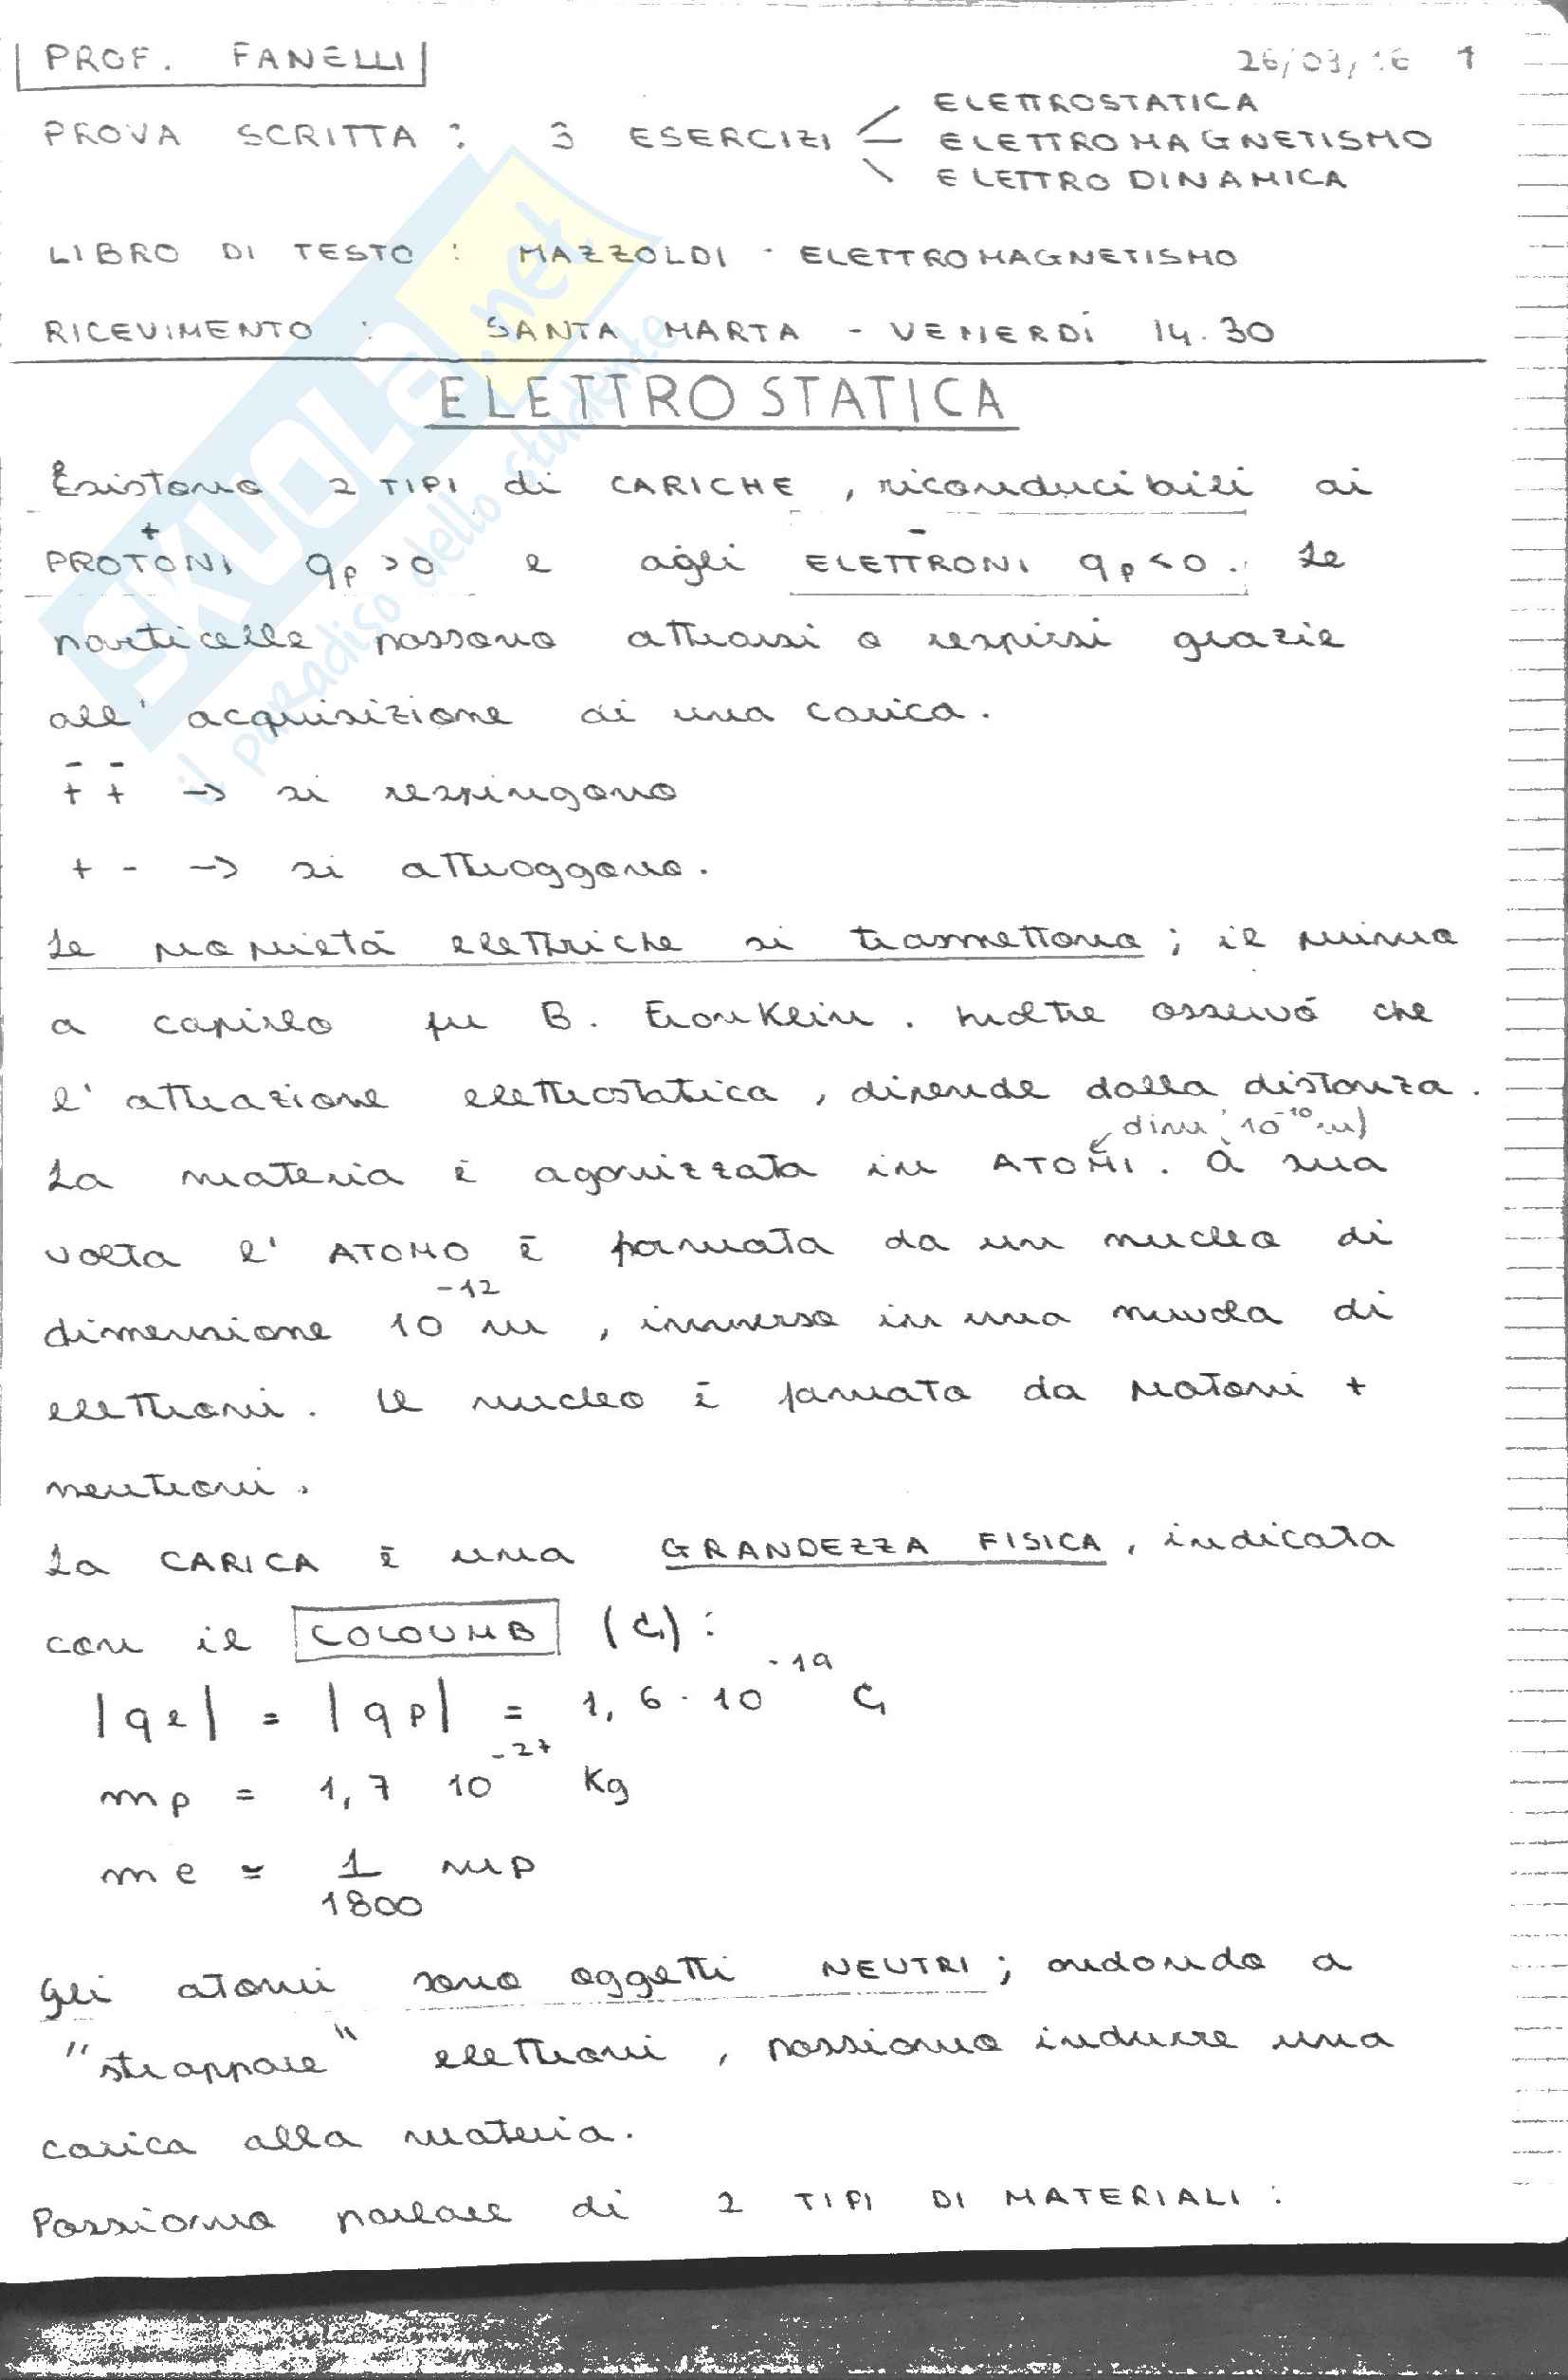 PROF. FANELLI 26/03/16 1
ELETTROSTATICA
PROVA SCRITTA : 3 ESERCIZI ELETTROMAGNETISMO
ELETTRODINAMICA
LIBRO DI TESTO : MAZZOLDI - ELETTROMAGNETISMO
RICEVIMENTO : SANTA MARTA - VENERDÍ 14.30
ELETTROSTATICA
Esistono 2 TIPI di CARICHE, riconducibili ai
+ -
PROTONI qp>0 e agli ELETTRONI qp<0. Le
particelle possono attrarsi o respirsi grazie
all' acquisizione di una carica.
- -
+ + -> si respingono
+ - -> si attraggono.
Le proprietá elettriche si trasmettono; il primo
a capirlo fu B. Franklin. Inoltre osservó che
l'attrazione elettrostatica, dipende dalla distanza.
dim. 10^-10 m)
La materia é agonizzata in ATOMI. A sua
volta l'ATOMO é formata da un nucleo di
dimensione 10^-12 m, immerso in una nuvola di
elettroni. Il nucleo é formato da protoni +
neutroni.
La CARICA é una GRANDEZZA FISICA, indicata
con il COLOUMB (C):
|qe| = |qp| = 1,6·10^-19 C
mp = 1,7 10^-27 Kg
me ≃ 1/1800 mp
Gli atomi sono oggetti NEUTRI; andando a
"strappare" elettroni, possiamo indurre una
carica alla materia.
Possiamo parlare di 2 TIPI DI MATERIALI:
SKUOLA.net
il paradiso dello studente